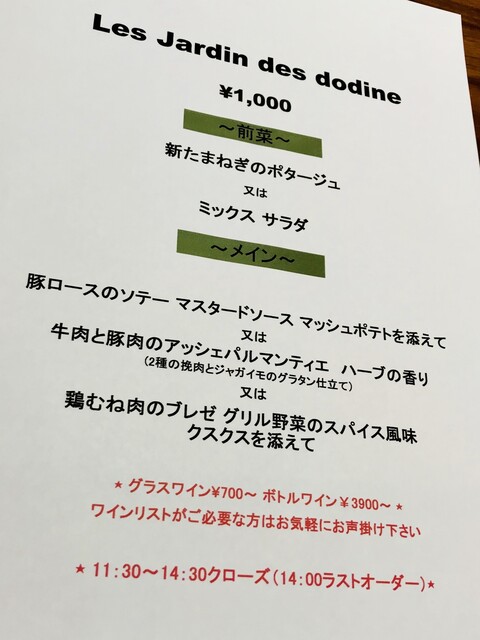 Les Jardin des dodine
¥1,000
～前菜～
新たまねぎのポタージュ
又は
ミックス サラダ
～メイン～
豚ロースのソテー マスタードソース マッシュポテトを添えて
又は
牛肉と豚肉のアッシェパルマンティエ ハーブの香り
(2種の挽肉とジャガイモのグラタン仕立て)
又は
鶏むね肉のブレゼ グリル野菜のスパイス風味
クスクスを添えて
★ グラスワイン¥700～ ボトルワイン￥3900～ ★
ワインリストがご必要な方はお気軽にお声掛け下さい
★ 11:30～14:30クローズ(14:00ラストオーダー)★